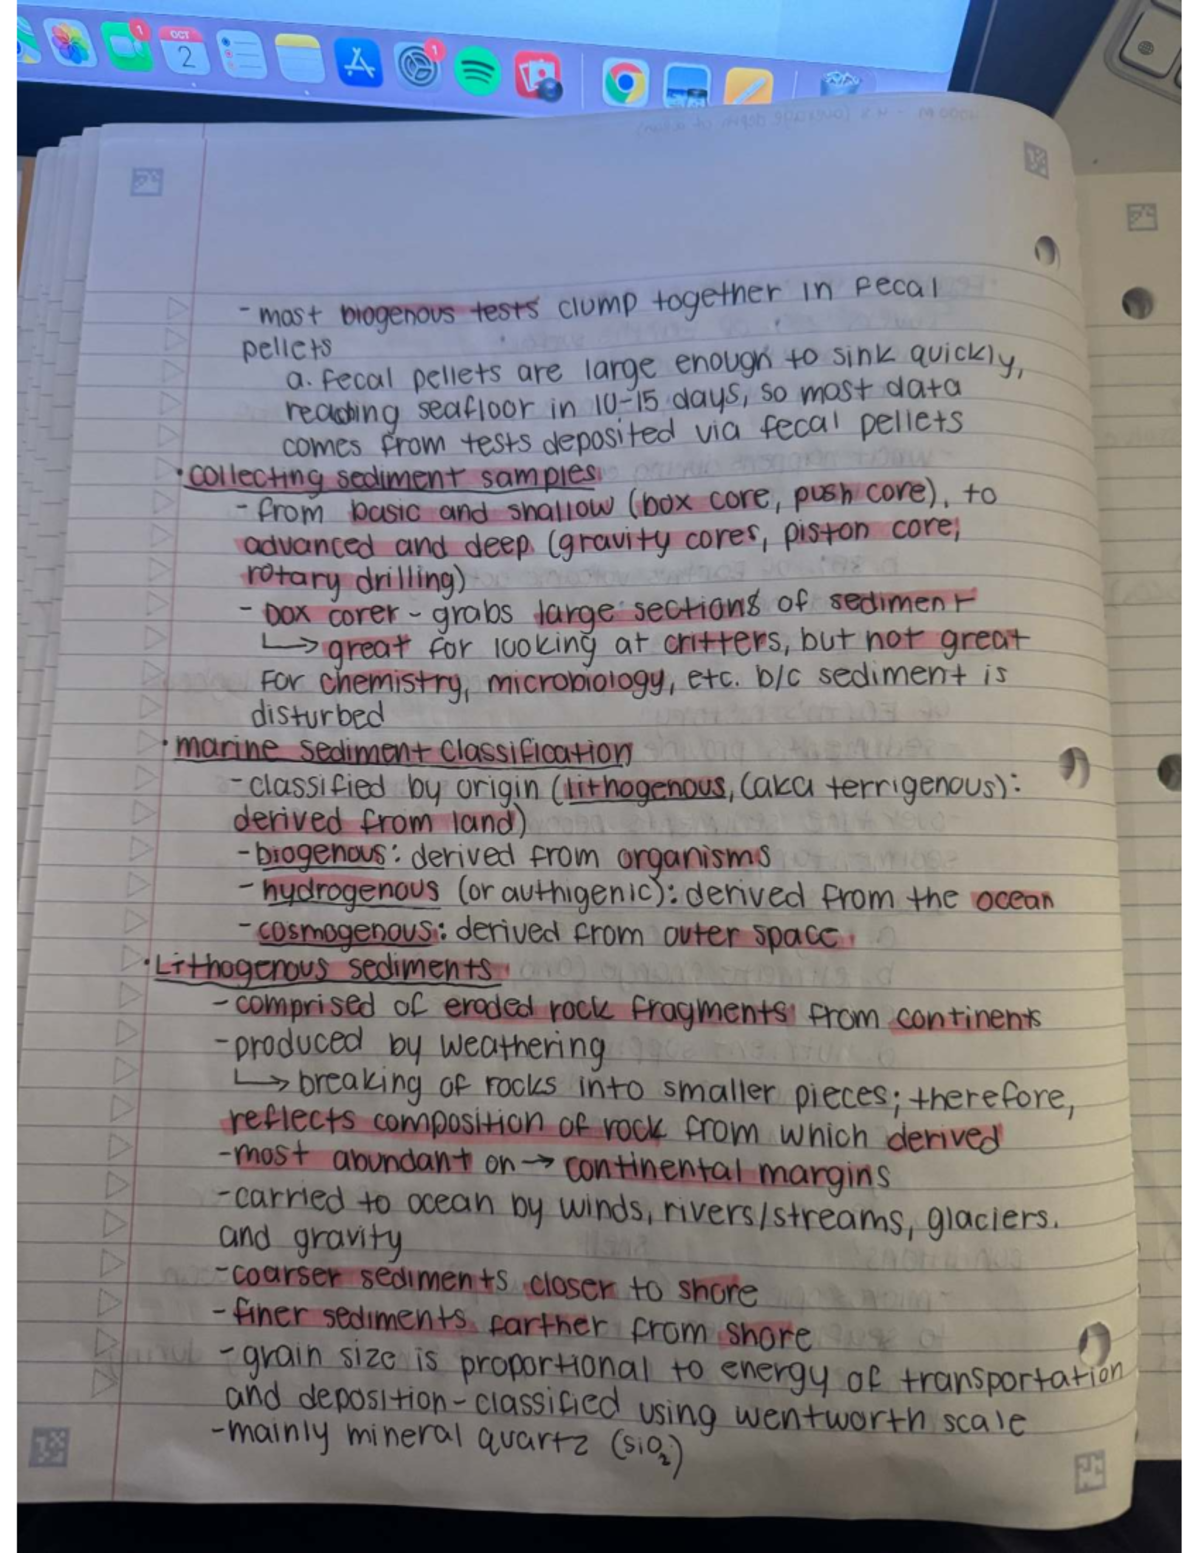 OCT
2
1
1
- most biogenous tests clump together in fecal
pellets
a. fecal pellets are large enough to sink quickly,
reaching seafloor in 10-15 days, so most data
comes from tests deposited via fecal pellets
• collecting sediment samples
- from basic and shallow (box core, push core), to
advanced and deep (gravity cores, piston core,
rotary drilling)
- box corer - grabs large sections of sediment
↳ great for looking at critters, but not great
for chemistry, microbiology, etc. b/c sediment is
disturbed
• marine sediment classification
- classified by origin (lithogenous, (aka terrigenous):
derived from land)
- biogenous: derived from organisms
- hydrogenous (or authigenic): derived from the ocean
- cosmogenous: derived from outer space
• Lithogenous sediments
- comprised of eroded rock fragments from continents
- produced by weathering
↳ breaking of rocks into smaller pieces; therefore,
reflects composition of rock from which derived
- most abundant on → continental margins
- carried to ocean by winds, rivers/streams, glaciers.
and gravity
- coarser sediments closer to shore
- finer sediments farther from shore
- grain size is proportional to energy of transportation
and deposition - classified using wentworth scale
- mainly mineral quartz (SiO₂)